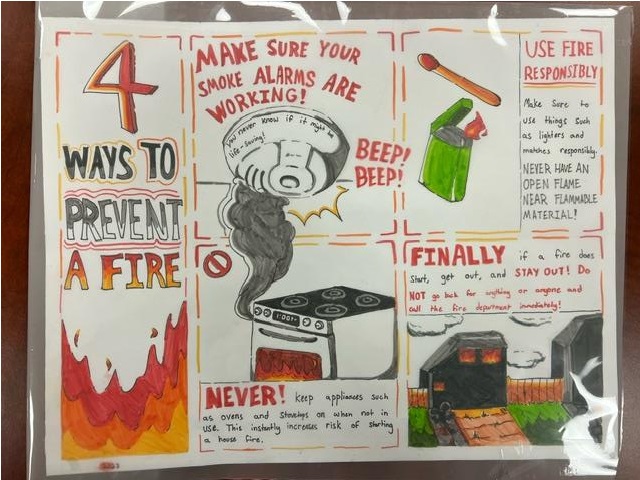 4
WAYS TO
PREVENT
A FIRE
MAKE SURE YOUR
SMOKE ALARMS ARE
WORKING!
you never know if it might be
life-saving!
BEEP!
BEEP!
NEVER! keep appliances such
as ovens and stovetops on when not in
use. This instantly increases risk of starting
a house fire.
USE FIRE
RESPONSIBLY
Make sure to
use things such
as lighters and
matches responsibly.
NEVER HAVE AN
OPEN FLAME
NEAR FLAMMABLE
MATERIAL!
FINALLY if a fire does
start, get out, and STAY OUT! Do
NOT go back for anything or anyone and
call the fire department immediately!